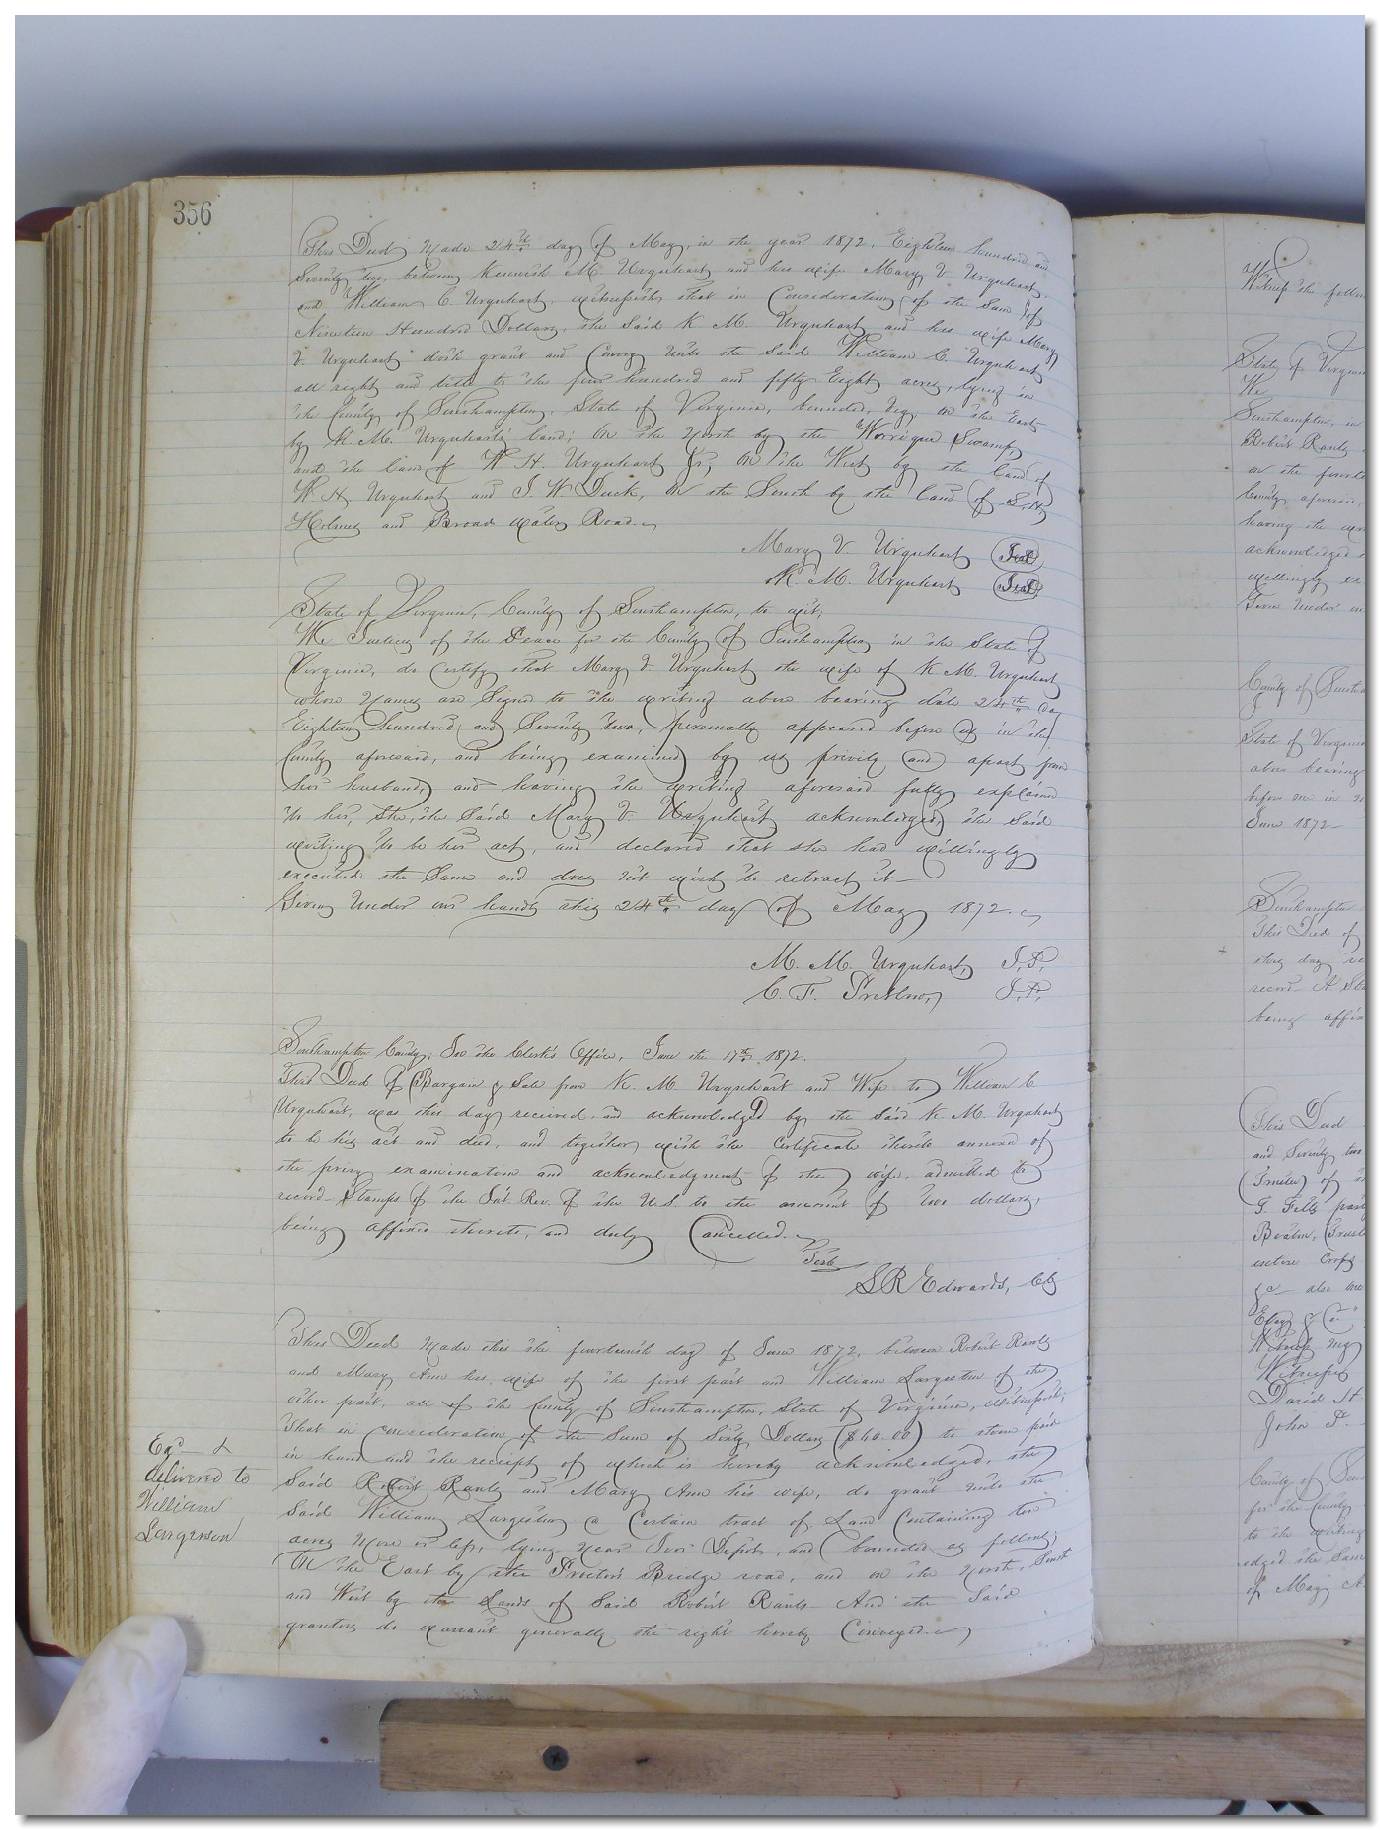 356
This Deed Made 24th day of May, in the year 1872, Eighteen hundred and
Seventy two, between Kenneth M. Urquhart and his wife Mary V. Urquhart,
and William C. Urquhart, witnesseth, that in Consideration of the Sum of
Nineteen Hundred Dollars, the Said K. M. Urquhart and his wife Mary
V. Urquhart doth grant and Convey Unto the Said William C. Urquhart
all right and title to the four hundred and fifty Eight acres, lying in
the County of Southampton, State of Virginia, bounded, Viz; on the East
by K. M. Urquhart's Land; On the North by the Swamp,
and the land of W. H. Urquhart Jr, On the West by the land of
W. H. Urquhart and J. W. Duck, On the South by the land of S. H.
Holmes and Broad water Road.
Mary V. Urquhart (Seal)
K. M. Urquhart (Seal)
State of Virginia, County of Southampton, to wit,
We Justices of the Peace for the County of Southampton in the State of
Virginia, do certify that Mary V. Urquhart the wife of K. M. Urquhart
whose Names are Signed to the writing above bearing date 24th day
Eighteen hundred and Seventy two, personally appeared before us in the
County aforesaid, and being examined by us privily and apart from
her husband, and having the writing aforesaid fully explained
to her, She, the Said Mary V. Urquhart acknowledged the Said
writing to be her act, and declared that she had willingly
executed the Same and does not wish to retract it—
Given Under our hands this 24th day of May 1872.
M. M. Urquhart, J.P.
C. F. J.P.
Southampton County; In the Clerk's Office, June the 17th 1872.
This Deed of Bargain & Sale from K. M. Urquhart and Wife to William C
Urquhart, was this day received and acknowledged by the said K. M. Urquhart
to be his act and deed, and together with the Certificate thereto annexed of
the privy examination and acknowledgment of the wife, admitted to
record Stamps of the Int. Rev. of the U.S. to the amount of two dollars,
being affixed thereto, and duly Cancelled.
Teste
S R Edwards, CC
This Deed Made this the fourteenth day of June 1872, between Robert Rawls
and Mary Ann his wife of the first part and William Largeston of the
other part, all of the County of Southampton, State of Virginia, witnesseth;
That in consideration of the Sum of Sixty Dollars ($60.00) to them paid
in hand and the receipt of which is hereby acknowledged, the
Said Robert Rawls and Mary Ann his wife, do grant unto the
Said William Largeston a Certain tract of Land Containing ten
acres More or less, lying Near Ivor Depot, and bounded as follows;
On the East by the Proctor's Bridge road, and on the North, South
and West by the Lands of Said Robert Rawls And the Said
grantors do warrant generally the right hereby Conveyed.
Exd &
delivered to
William
Largeson
Witness the follow
State of Virginia
We
Southampton, in
Robert Rawls
on the fourte
County aforesaid,
having the wri
acknowledged
willingly ex
Given Under our
County of South
State of Virginia
above bearing
before me in
June 1872—
Southampton
This Deed of
this day re
record
being affix
This Deed
and Seventy two
(Trustee) of
T. Felts part
Beaton, Trust
entire Crop
&c also one
Witness my
Witnesses
David H
John
County of Sou
for the County
to the writing
edged the Same
of May